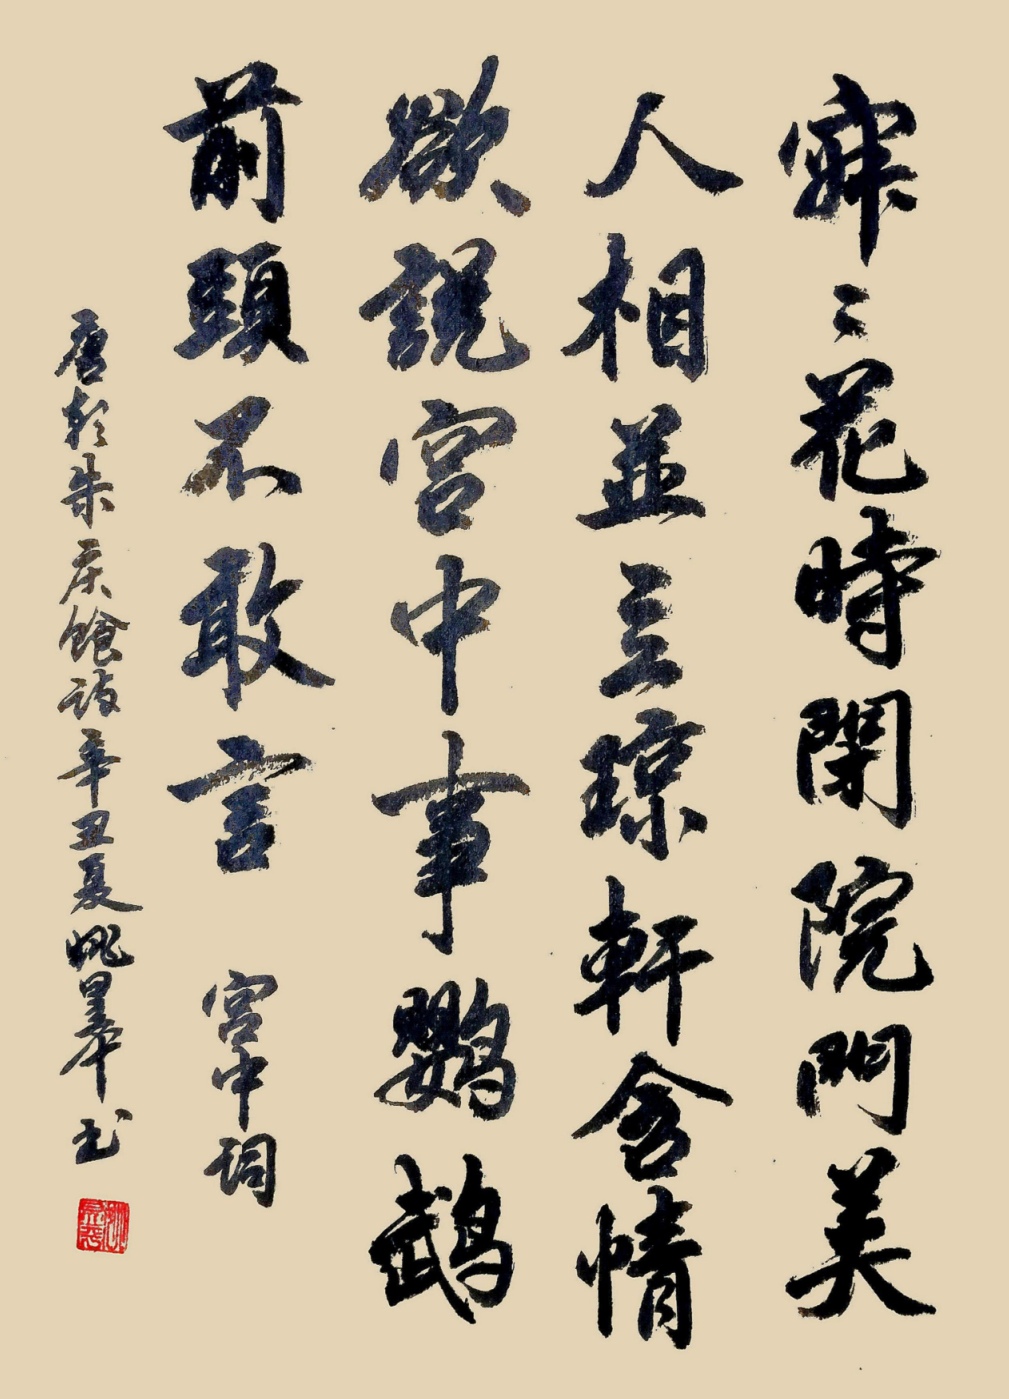 寂〻花時閉院門美
人相並立瓊軒含情
欲說宫中事鸚鵡
前頭不敢言
宫中詞
唐 朱庆餘诗辛丑夏姚 书